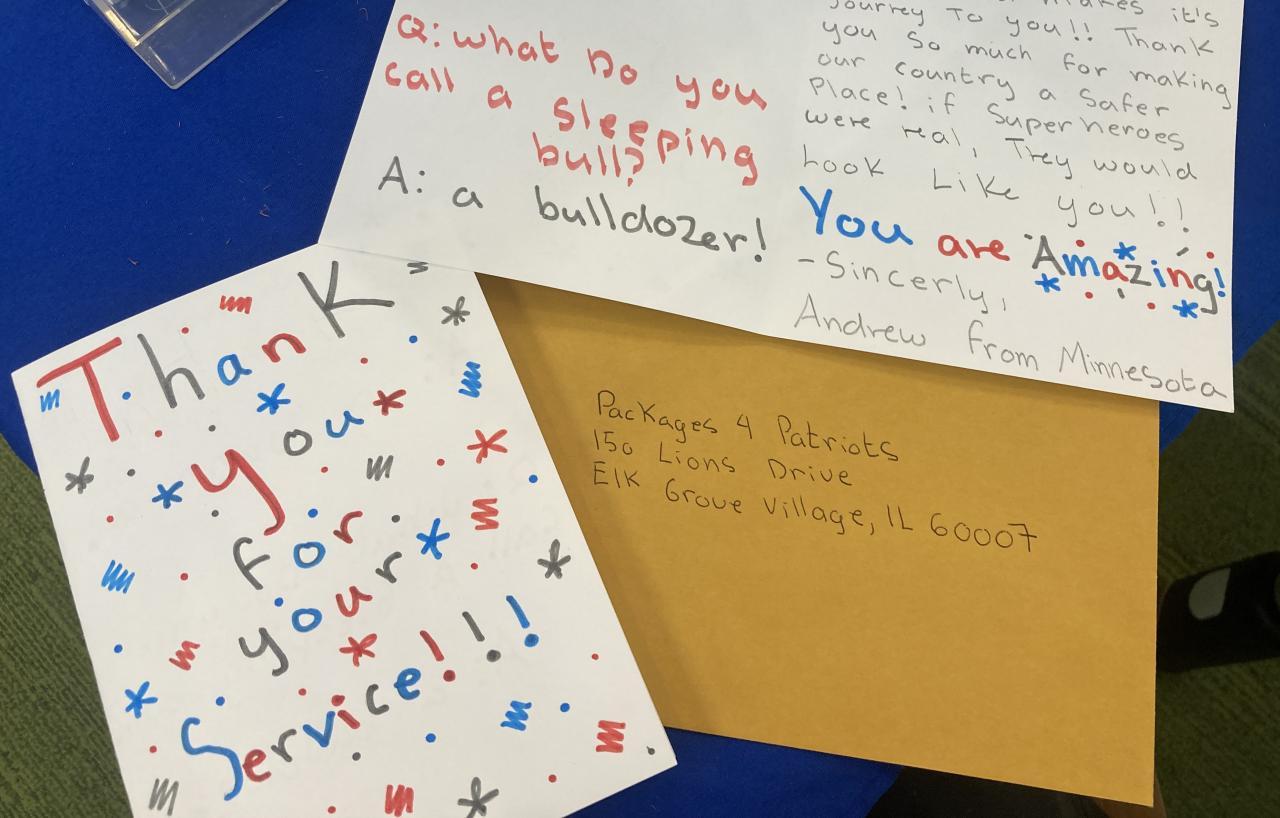 Q: what Do you
call a sleeping
bull?
A: a bulldozer!
makes it's
Journey To you!! Thank
you so much for making
our country a Safer
Place! if Superheroes
were real, They would
Look Like you!!
You are Amazing!
-Sincerly,
Andrew from Minnesota
Thank
you
for
your
Service!!!
Packages 4 Patriots
150 Lions Drive
Elk Grove Village, IL 60007